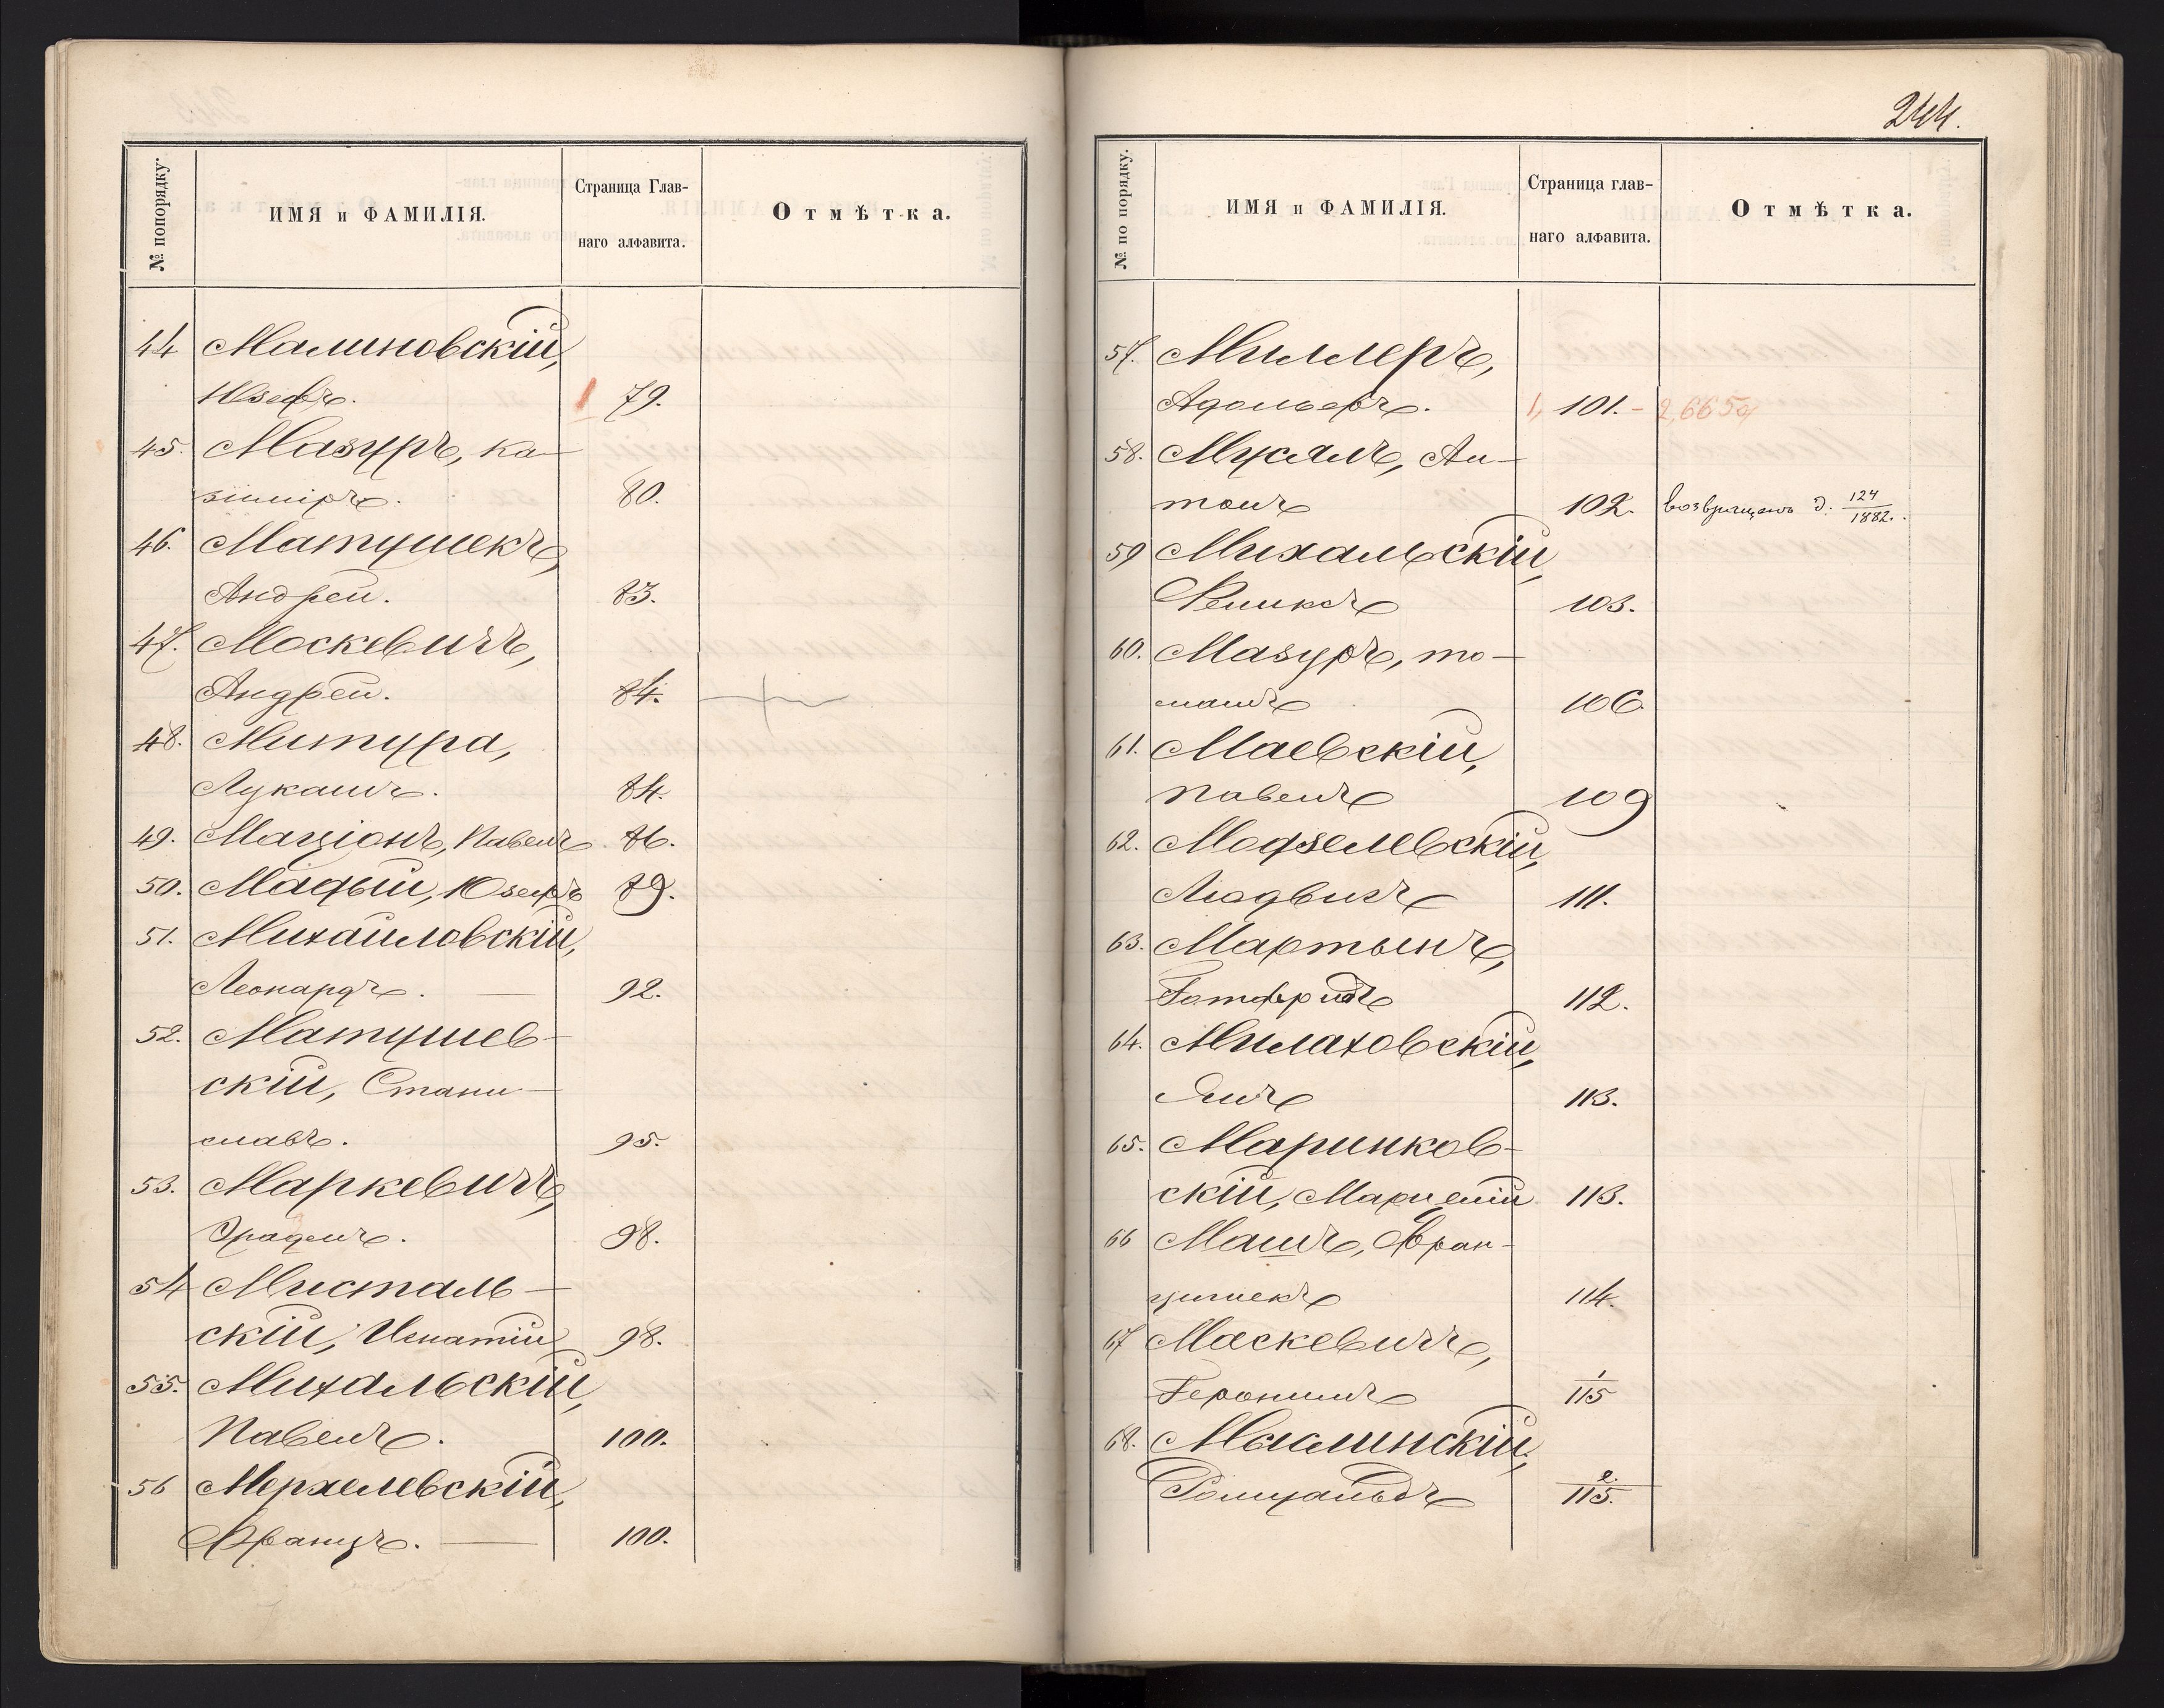 № попорядку.
ИМЯ и ФАМИЛІЯ.
Страница Глав-
наго алфавита.
Отмѣтка.
44 Малиновскій,
Юзефъ. 1 79.
45. Мазуръ, Ка-
зиміръ. 80.
46. Матушекъ,
Андрей. 83.
47. Москевичъ,
Андрей. 84.
48. Митура,
Лукашъ. 84.
49. Маціонъ, Павелъ 86.
50. Мадый, Юзефъ 89.
51. Михайловскій,
Леонардъ. — 92.
52. Матушев-
скій, Стани-
славъ. 95.
53. Маркевичъ,
98.
54 Мисталь-
скій, Игнатій 98.
55. Михальскій,
Павелъ. 100.
56 Мерхелевскій,
Францъ. — 100.
244.
№ по порядку.
ИМЯ и ФАМИЛІЯ.
Страница глав-
наго алфавита.
Отмѣтка.
57. Миллеръ,
Адольфъ. 1, 101. -
58. Мусялъ, Ан-
тонъ 102. возвращенъ д. 124/1882.
59 Михальскій,
Феликсъ 103.
60. Мазуръ, То-
машъ 106
61. Маевскій,
Павелъ 109
62. Модзелевскій,
Людвигъ 111.
63. Мартынъ,
Готфридъ 112.
64. Милаховскій,
Янъ 113.
65. Маринков-
скій, Марцелій 113.
66 Машъ, Фран-
цишекъ 114.
67 Маскевичъ,
Геронимъ 1/115
68. Мыслинскій,
Ромуальдъ 2./115.